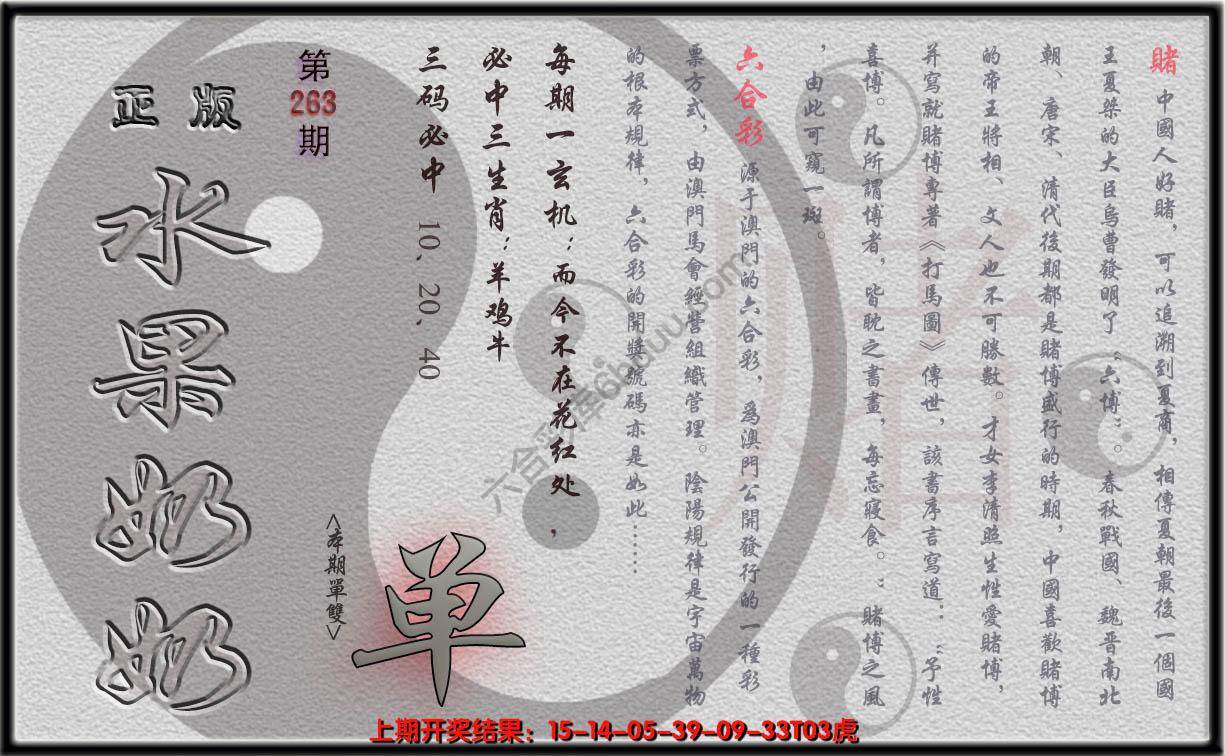 賭 中國人好賭，可以追溯到夏商，相傳夏朝最後一個國
王夏桀的大臣烏曹發明了“六博”。春秋戰國、魏晋南北
朝、唐宋、清代後期都是賭博盛行的時期，中國喜歡賭博
的帝王將相、文人也不可勝數。才女李清照生性愛賭博，
并寫就賭博專著《打馬圖》傳世，該書序言寫道：“予性
喜博。凡所謂博者，皆耽之書畫，每忘寢食。”賭博之風
，由此可窺一斑。
六合彩 源于澳門的六合彩，爲澳門公開發行的一種彩
票方式，由澳門馬會經營組織管理。陰陽規律是宇宙萬物
的根本規律，六合彩的開獎號碼亦是如此……
每期一玄机：而今不在花红处，
必中三生肖：羊鸡牛
三码必中 10、20、40
第263期
正版
水果奶奶
<本期單雙>
单
赌
六合彩库6huuu.com
上期开奖结果：15-14-05-39-09-33T03虎